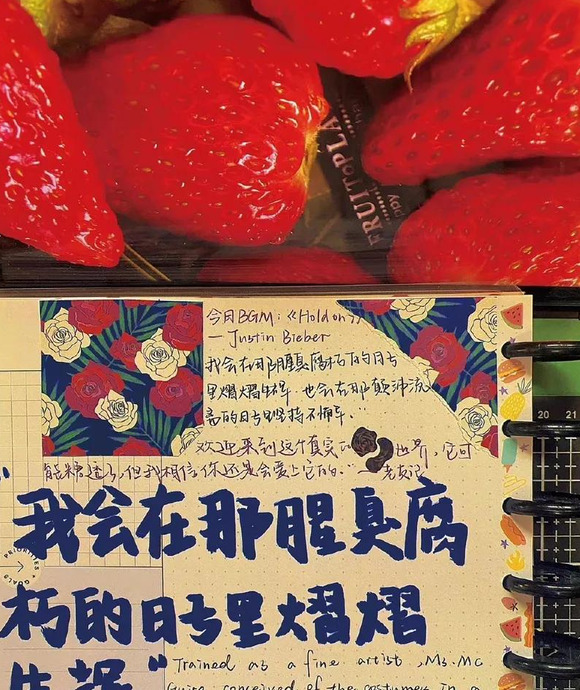 FRUITOPLA
ppy
今日BGM：《Hold on》
— Justin Bieber
我会在那腥臭腐朽的日子
里熠熠生辉，也会在那颠沛流
离的日子里坚持不懈．
欢迎来到这个真实 世界，它可
能糟透了，但我相信你还是会爱上它的．"—老友记
"我会在那腥臭腐
PRIORITIES
GOALS
朽的日子里熠熠
生辉"
Trained as a fine artist, Ms. Mc
Guire conceived of the costumes in a
20 21